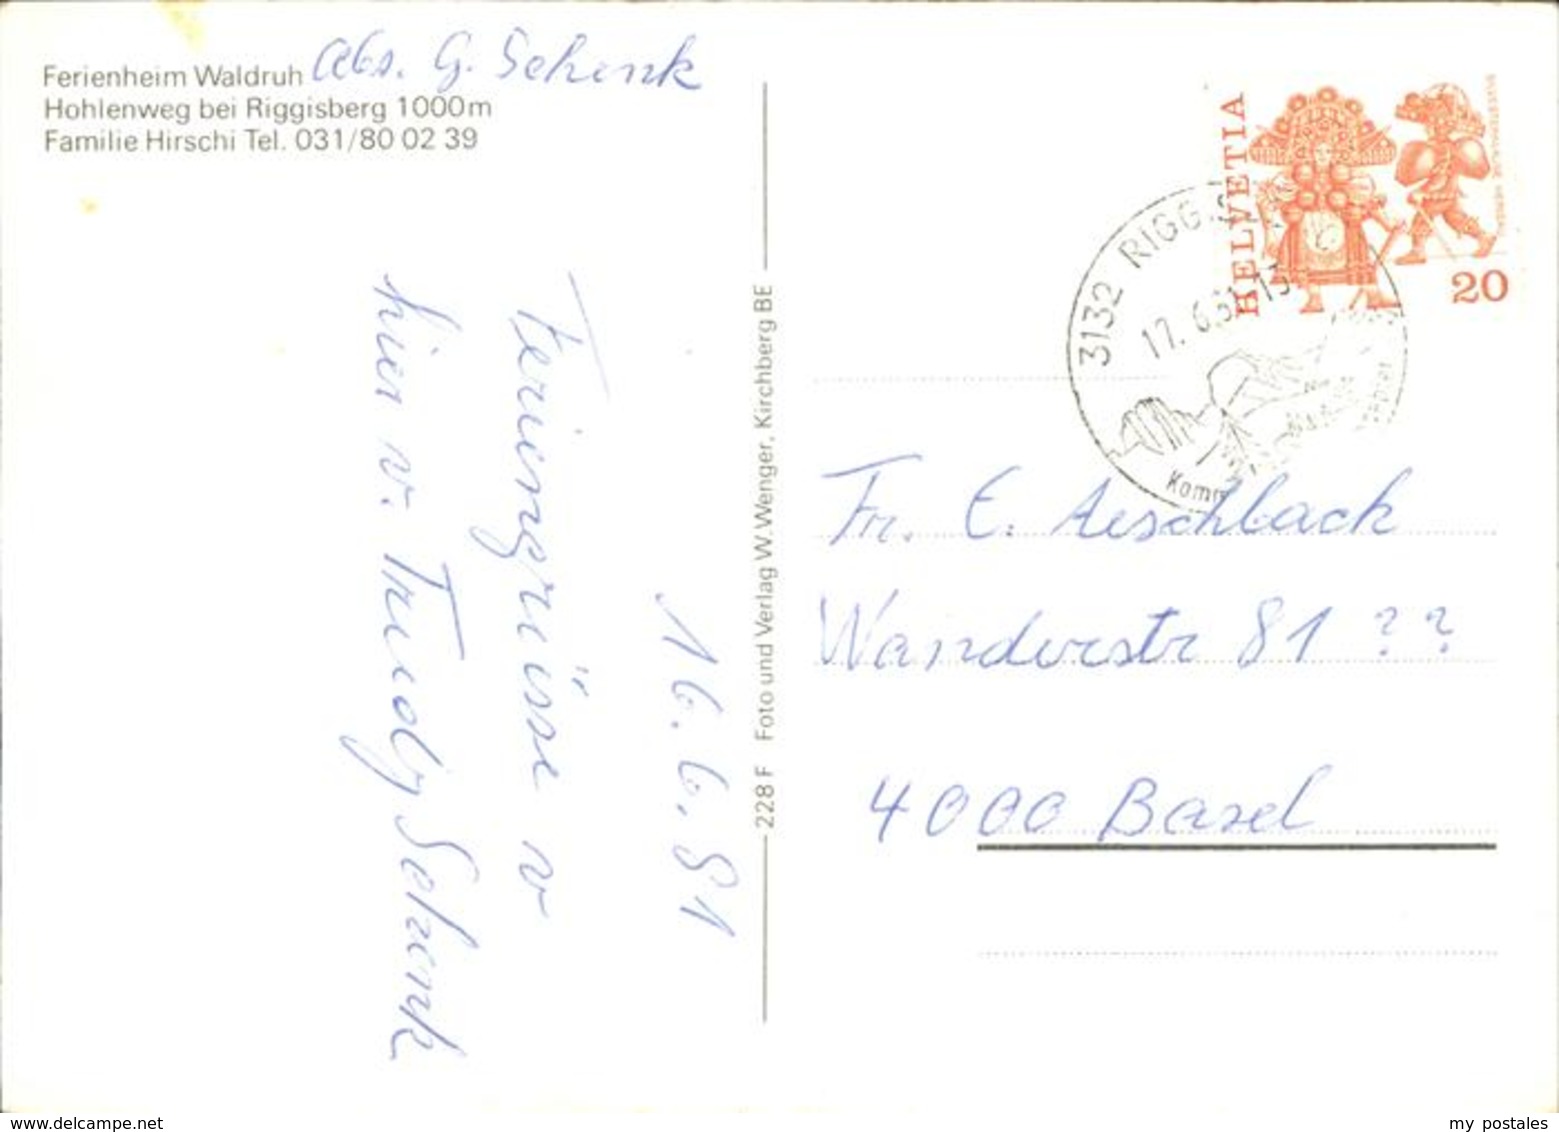 Ferienheim Waldruh
Hohlenweg bei Riggisberg 1000m
Familie Hirschi Tel. 031/80 02 39
Abs. G. Schenk
16.6.81
Feriengrüsse v
hier v. Trudy Schenk
228 F Foto und Verlag W.Wenger, Kirchberg BE
HELVETIA
20
3132 RIGGIS
17.6.81-13
Fr. E. Aeschback
Wanderstr 81 ??
4000 Basel
delcampe.net
my postales